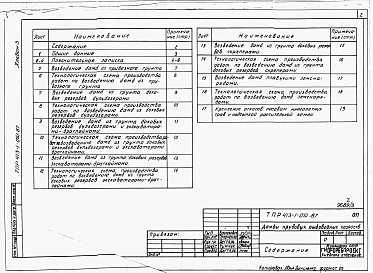 2
Альбом 3
Лист
Наименование
Примечание (стр.)
Содержание
2
1
Общие данные
3
2-4
Пояснительная записка
4-6
5
Возведение дамб из привозного грунта
7
6
Технологическая схема производства
работ по возведению дамб из при-
возного грунта
8
7
Возведение дамб из грунта боко-
вых резервов бульдозерами
9
8
Технологическая схема производства
работ по возведению дамб из грунта
боковых резервов бульдозерами
10
9
Возведение дамб из грунта боковых
резервов бульдозерами и экскаватора-
ми-драглайнами
11
10
Технологическая схема производства
работ по возведению дамб из грунта боковых
резервов бульдозерами и экскаваторами-
драглайнами
12
11
Возведение дамб из грунта боковых резервов
экскаваторами-драглайнами
13
12
Технологическая схема производства
работ по возведению дамб из грунта
боковых резервов экскаваторами-драг-
лайнами
14
Лист
Наименование
Примечание (стр.)
13
Возведение дамб из грунта боковых резер-
вов скреперами
15
14
Технологическая схема производства
работ по возведению дамб из грунта
боковых резервов скреперами
16
15
Возведение дамб плавучими земсна-
рядами
17
16
Технологическая схема производства
работ по возведению дамб земснаря-
дами
18
17
Крепление откосов посевом многолетних
трав с подсыпкой растительной земли
19
Привязан:
ТПР 413-1-012.87
ОП
Дамбы прудовых рыбоводных хозяйств
Содержание
Копировал
Формат А3